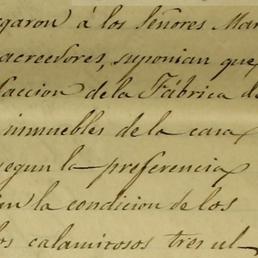 garon) á los Señores Mar
acreedores, suponian que
faccion de la Fábrica de
inmuebles de la casa
segun la preferencia
en la condicion de los
los calamitosos tres ul